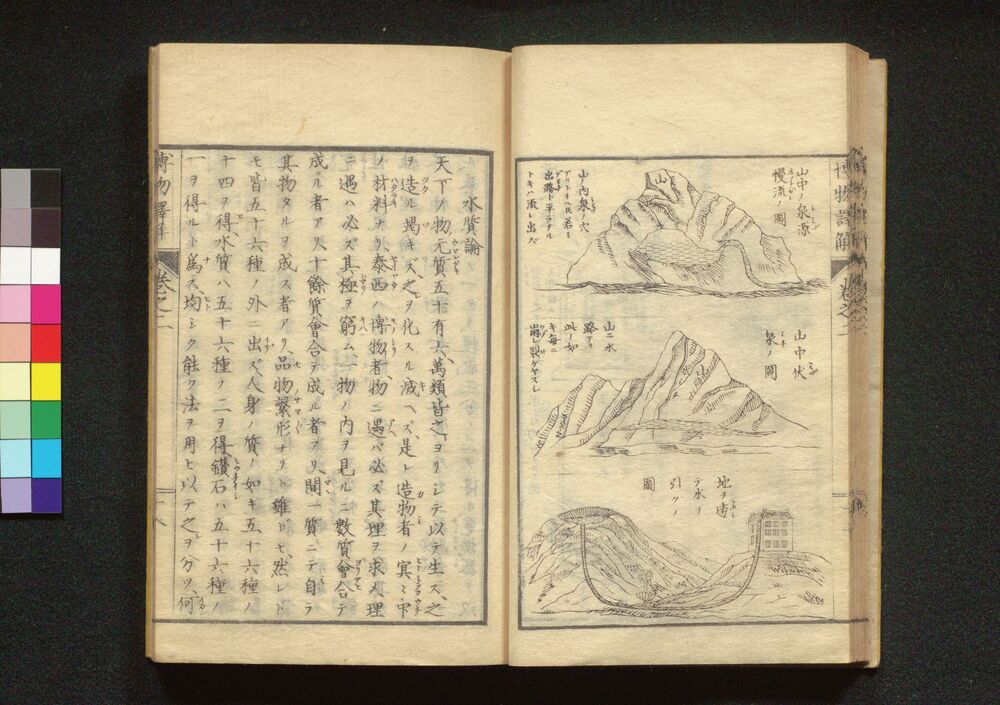 博物訳解
卷之一
山中ノ泉源
慢流ノ圖
山ノ内泉ノ穴
アリトイヘ𪜈若シ
出路ト平ラナル
トキハ流レ出ズ
山
山中伏
泉ノ圖
山ニ水
路アリ
此ノ如
キ毎ニ
崩レ裂ケヤスシ
山
水
地ヲ透
テ水ヲ
引クノ
圖
水質論
天下ノ物元質五十有六萬類皆之ヨリシテ以テ生ス之
ヲ造ル竭キズ之ヲ化スル滅ヘズ是レ造物者ノ冥々中
ノ材料ナリ泰西ハ博物者物ニ遇ハバ必ズ其理ヲ求メ理
ニ遇ハ必ズ其極ヲ窮ム一物ノ内ヲ見ルニ數質會合テ
成ル者アリ十餘質會合テ成ル者アリ間一質ニテ自ラ
其物タルヲ成ス者アリ品物繁形ナリト雖ドモ然レド
モ皆五十六種ノ外ニ出ズ人身ノ質ノ如キ五十六種ノ
十四ヲ得水質ハ五十六種ノ二ヲ得鑚石ハ五十六種ノ
一ヲ得ルト爲ス均シク能ク法ヲ用ヒ以テ之ヲ分ツ何
博物譯解
卷之一
十八